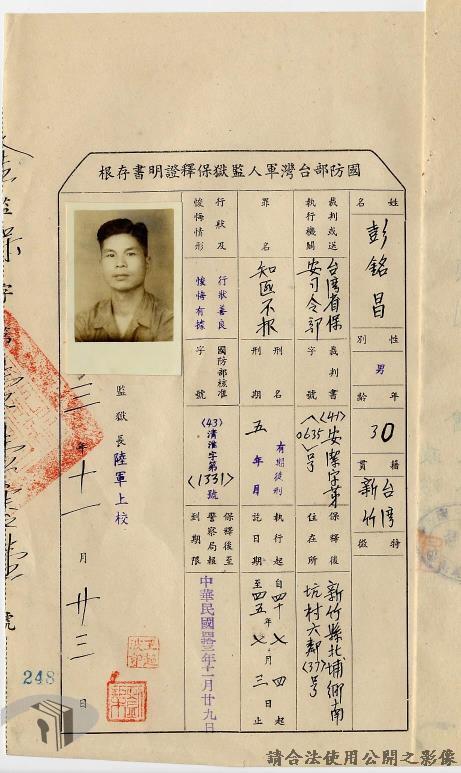 國防部台灣軍人監獄保釋證明書存根
姓名
彭銘昌
性別
男
年齡
30
籍貫
台灣新竹
特徵
裁判或送執行機關
台灣省保安司令部
裁判書字號
(41)安潔字第
0635號
保釋後住在所
新竹縣北埔鄉南
坑村六鄰(37)号
罪名
知匪不报
刑名刑期
有期徒刑
五年月
執行起訖日期
自四十年七月四起
至四五年七月三止
行狀及悛悔情形
行狀善良
悛悔有據
國防部核准字號
(43)清淮字第
(1331)號
保釋後至警察局報到期限
中華民國四三年十二月廿九日
監獄長陸軍上校
三年十一月廿三日
248
請合法使用公開之影像